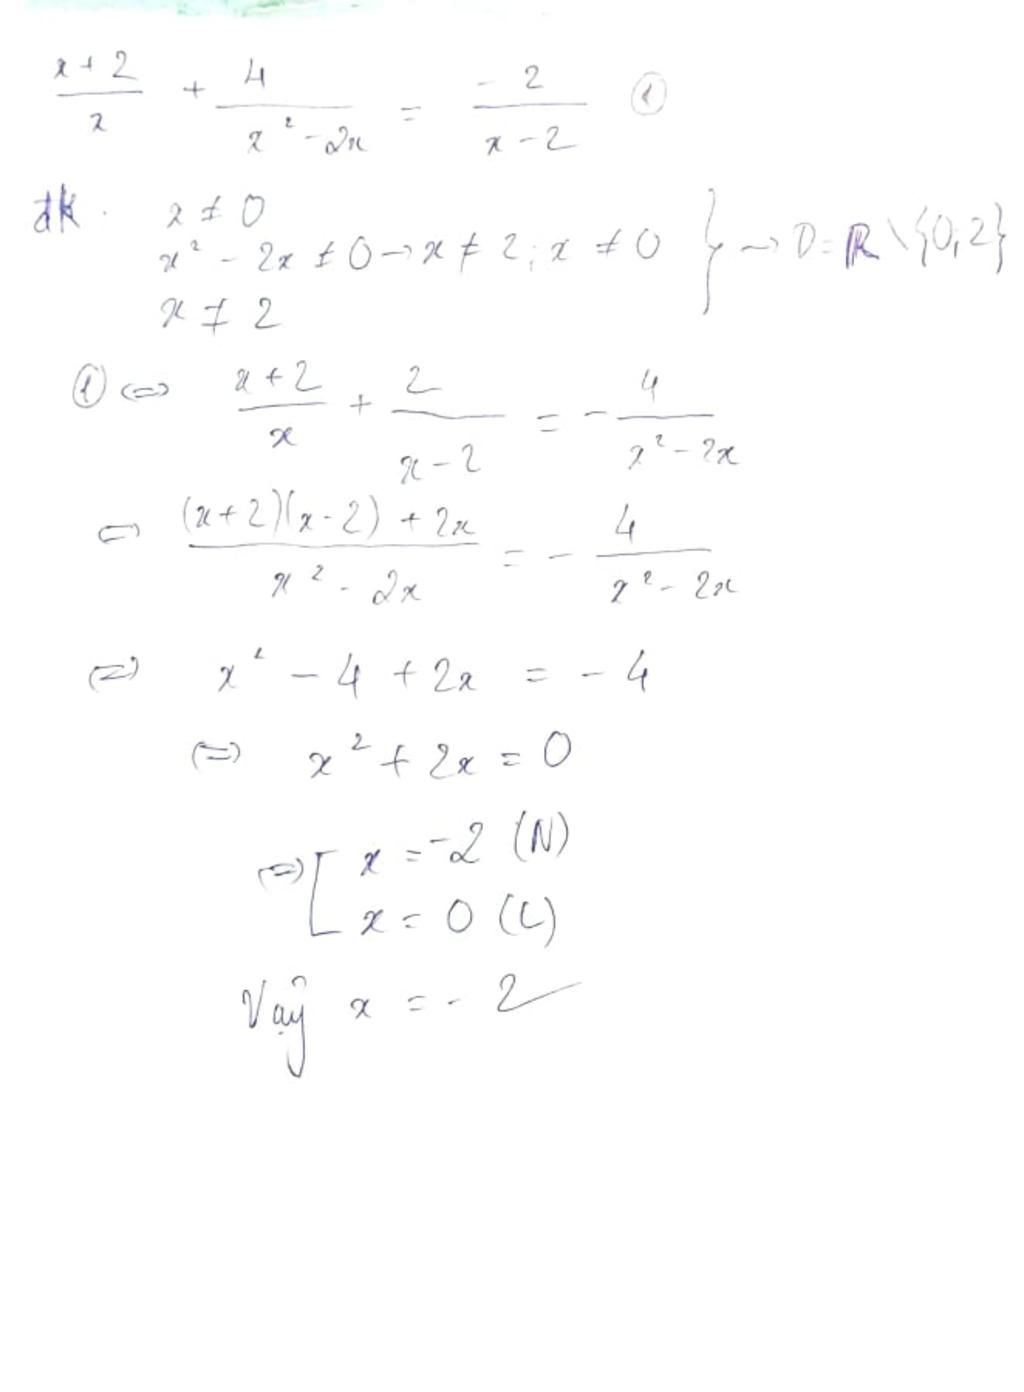 (x+2)/x + 4/(x² - 2x) = -2/(x - 2) ①
đk. x ≠ 0
x² - 2x ≠ 0 → x ≠ 2; x ≠ 0 } → D = ℝ \ {0; 2}
x ≠ 2
① ⇔ (x+2)/x + 2/(x - 2) = - 4/(x² - 2x)
⇔ ((x+2)(x-2) + 2x)/(x² - 2x) = - 4/(x² - 2x)
⇔ x² - 4 + 2x = - 4
⇔ x² + 2x = 0
⇔ [ x = -2 (N)
x = 0 (L)
Vậy x = - 2